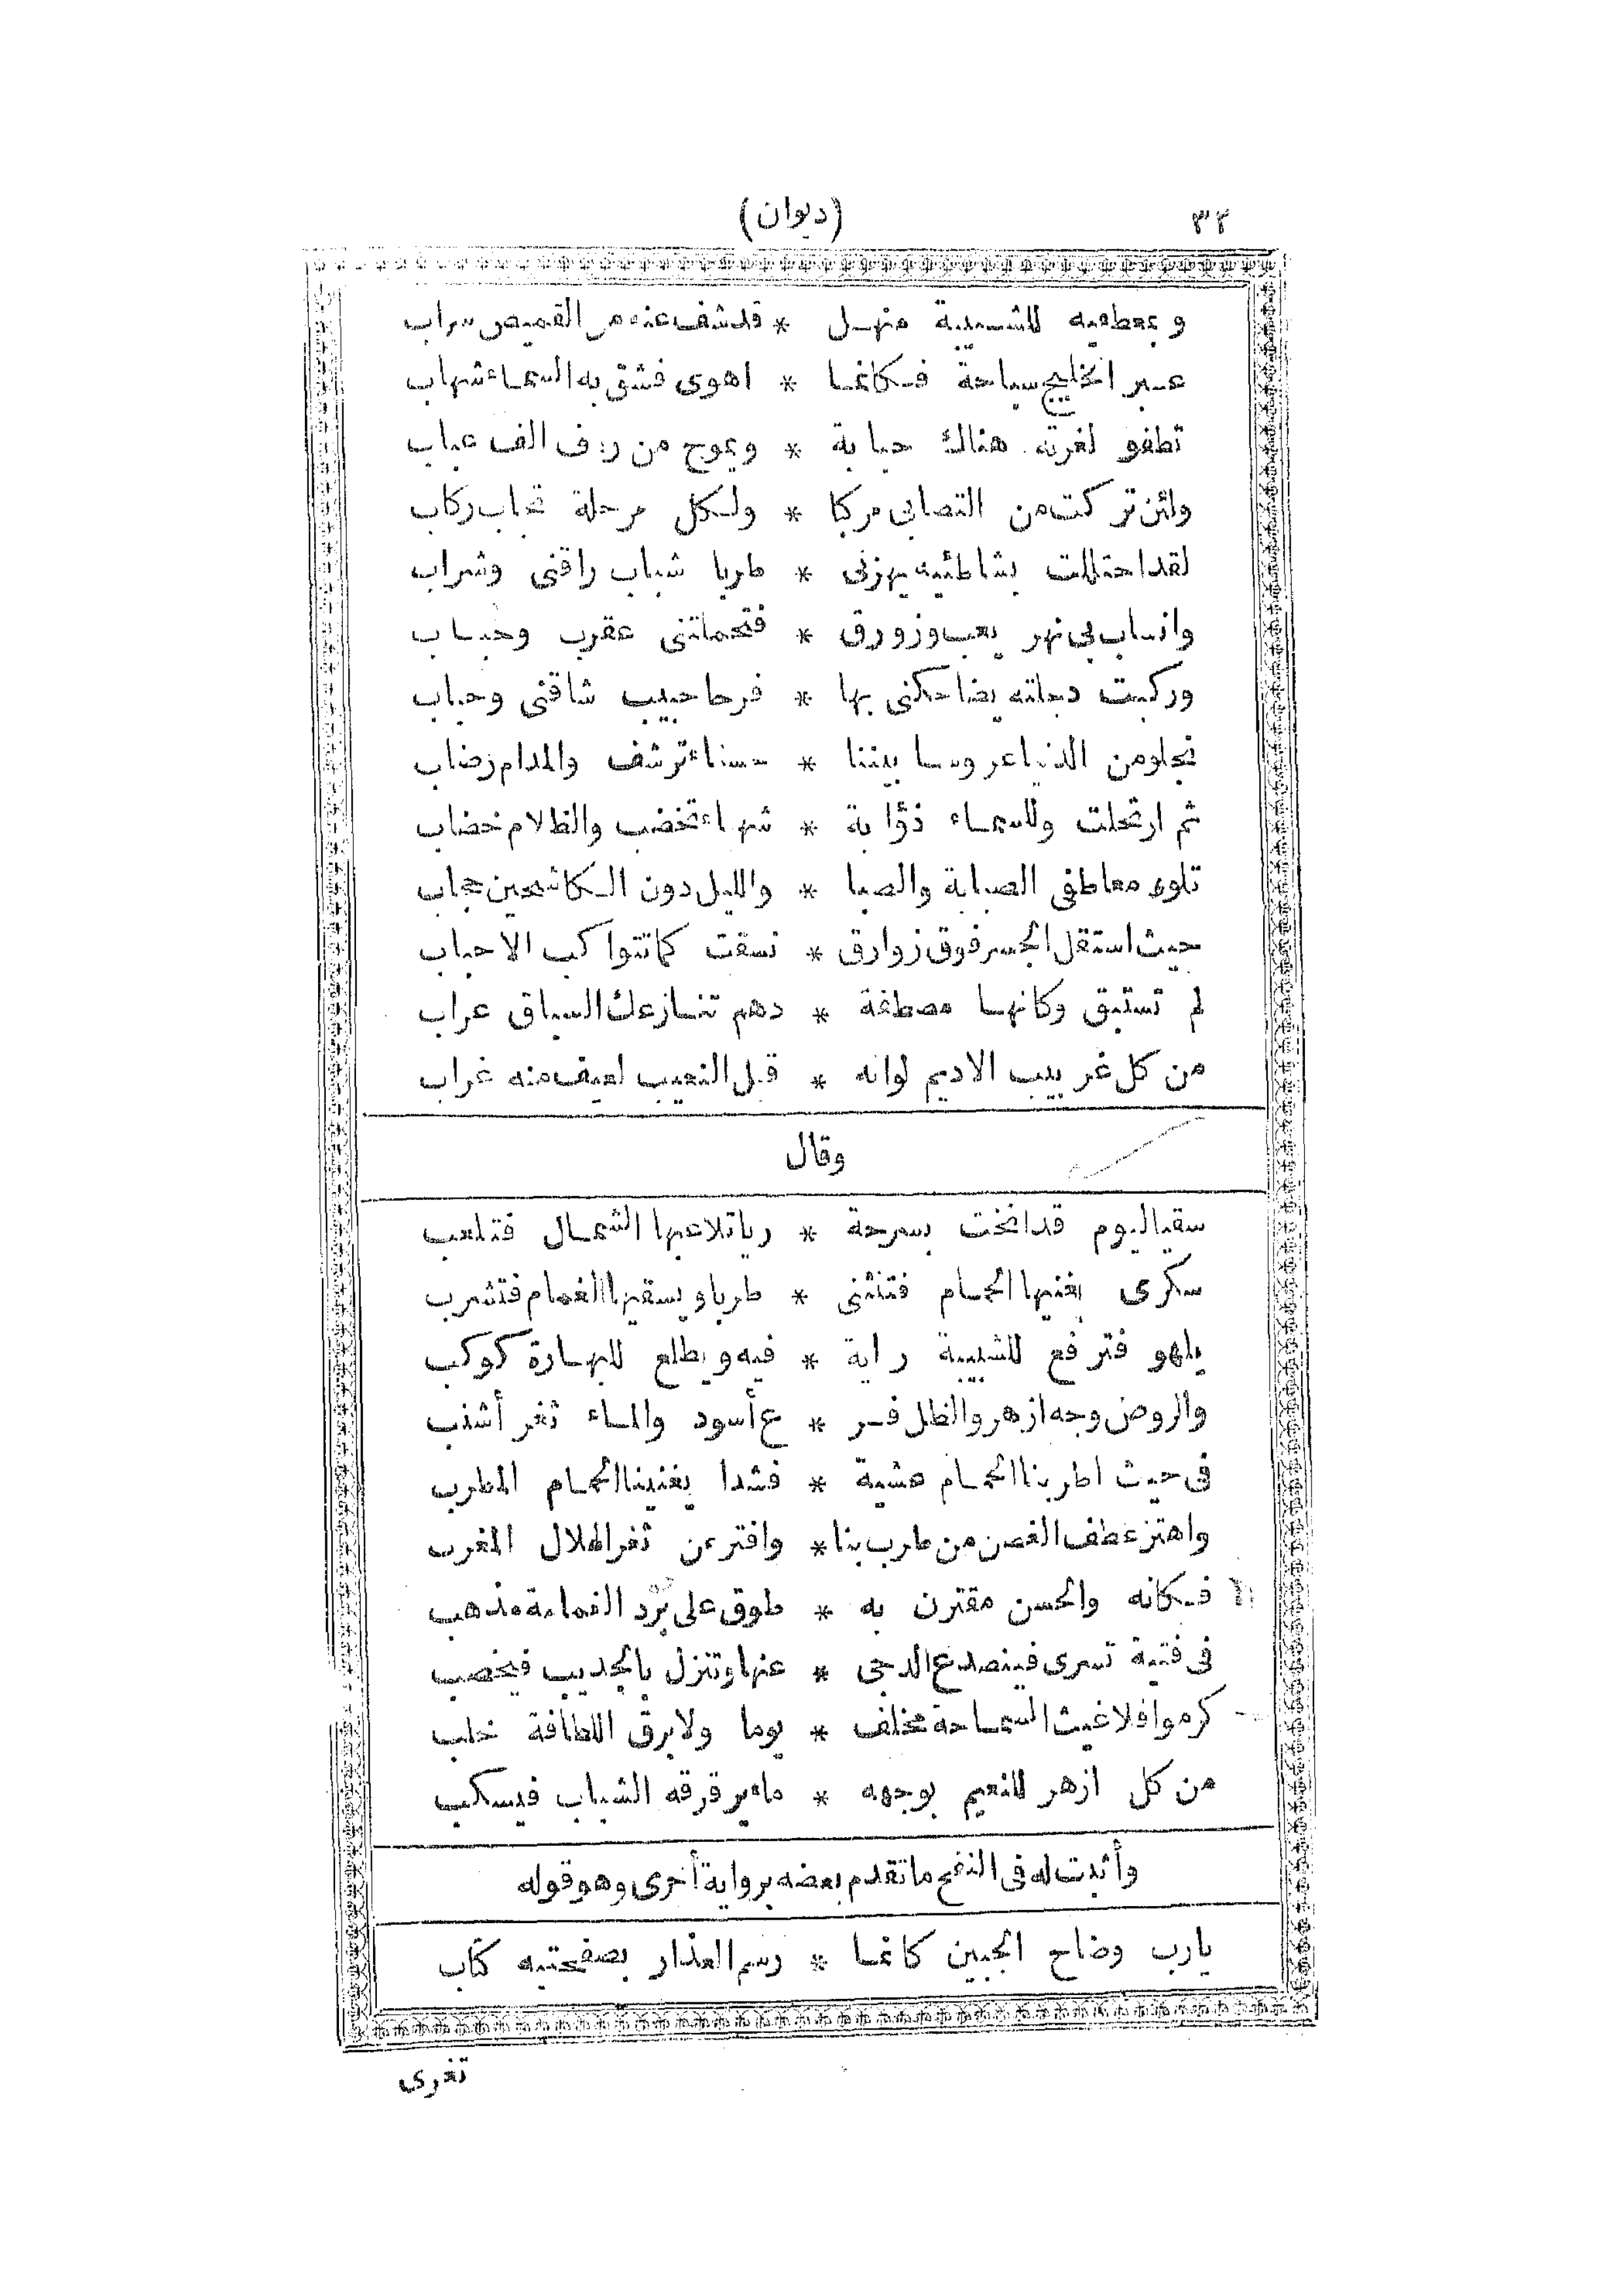 ٣٢
(ديوان)
وبمعطفيه للشبيبة منهل * قد شف عنه من القميص سراب
عبر الخليج سباحة فكانما * اهوى فشق به السماء شهاب
تطفو لغرته هناك حبابة * ويموج من ردف الف عباب
ولئن تركت من التصابى مركبا * ولكل مرحلة تجاب ركاب
لقد احتللت بشاطئيه يهزنى * طربا شباب راقنى وشراب
وانساب بى نهر يعب وزورق * فتحملتنى عقرب وحباب
وركبت دجلته يضاحكنى بها * فرحا حبيب شاقنى وحباب
نجلو من الدنيا عروسا بيننا * حسناء ترشف والمدام رضاب
ثم ارتحلت وللسماء ذؤابة * شهباء تخضب والظلام خضاب
تلوى معاطفى الصبابة والصبا * والليل دون الكاشحين حجاب
حيث استقل الجسر فوق زوارق * نسقت كما تتواكب الاحباب
لم تستبق وكانها مصطفة * دهم تنازعك السباق عراب
من كل غربيب الاديم لوانه * قبل النعيب لعيف منه غراب
وقال
سقيا ليوم قد انخت بسرحة * ريا تلاعبها الشمال فتلعب
سكرى يغنيها الحمام فتنثنى * طربا ويسقيها الغمام فتشرب
يلهو فترفع للشبيبة راية * فيه ويطلع للبهارة كوكب
والروض وجه ازهر والظل فر * ع أسود والماء ثغر أشنب
فى حيث اطربنا الحمام عشية * فشدا يغنينا الحمام المطرب
واهتز عطف الغصن من طرب بنا * وافتر عن ثغر الهلال المغرب
فكانه والحسن مقترن به * طوق على برد الغمامة مذهب
فى فتية تسرى فينصدع الدجى * عنها وتنزل بالجديب فيخصب
كرموا فلا غيث السماحة مخلف * يوما ولا برق اللطافة خلب
من كل ازهر للنعيم بوجهه * ماء يرقرقه الشباب فيسكب
وأثبت له فى النفح ما تقدم بعضه برواية أخرى وهو قوله
يارب وضاح الجبين كانما * رسم العذار بصفحتيه كتاب
تغرى